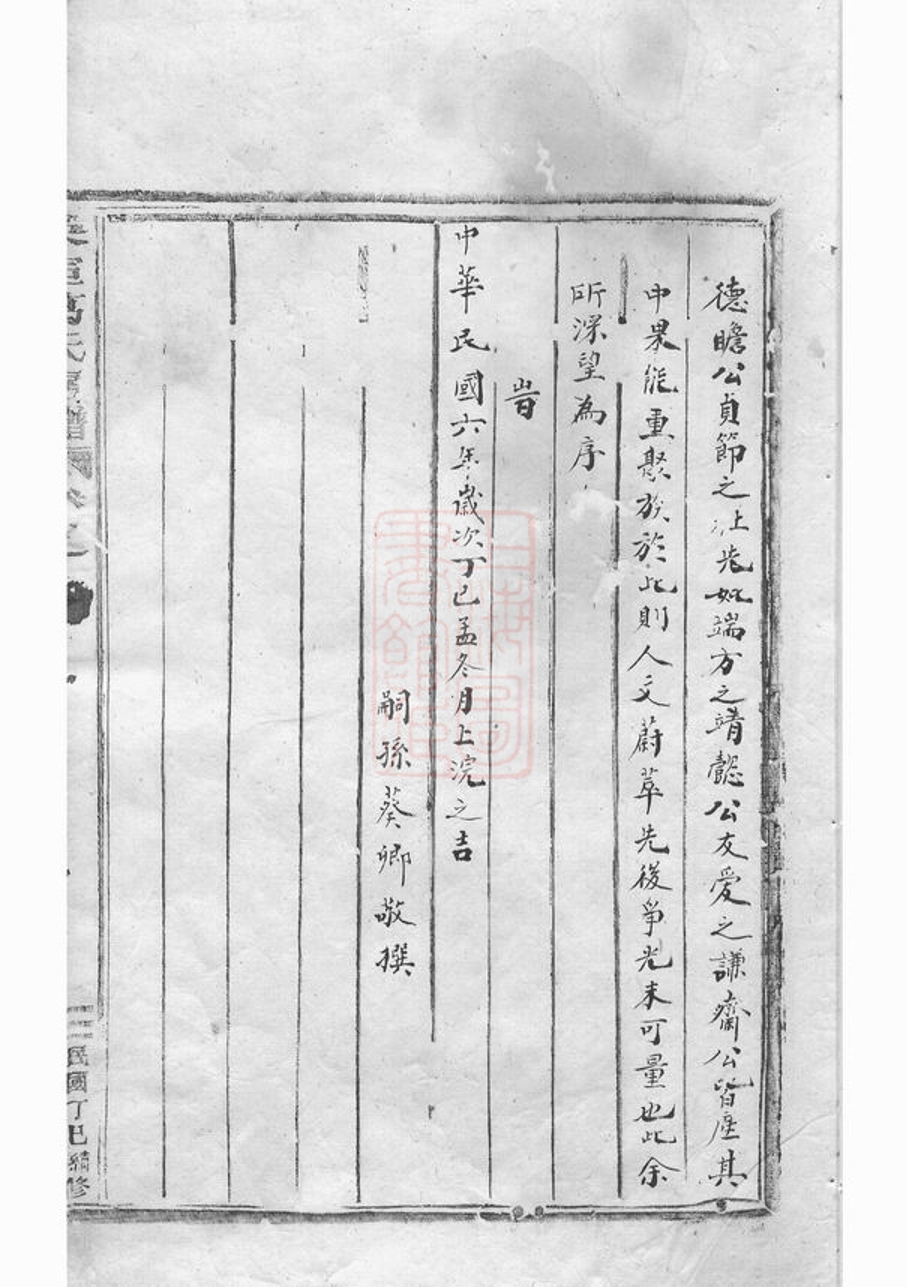 德瞻公貞節之灶先妣端方之靖懿公友愛之謙齋公皆塟其
中果能重聚族於此則人文蔚萃先後爭光未可量也此余
所深望為序
旹
中華民國六年歲次丁巳孟冬月上浣之吉
嗣孫葵卿敬撰
萬氏宗譜 卷之
民國丁巳續修